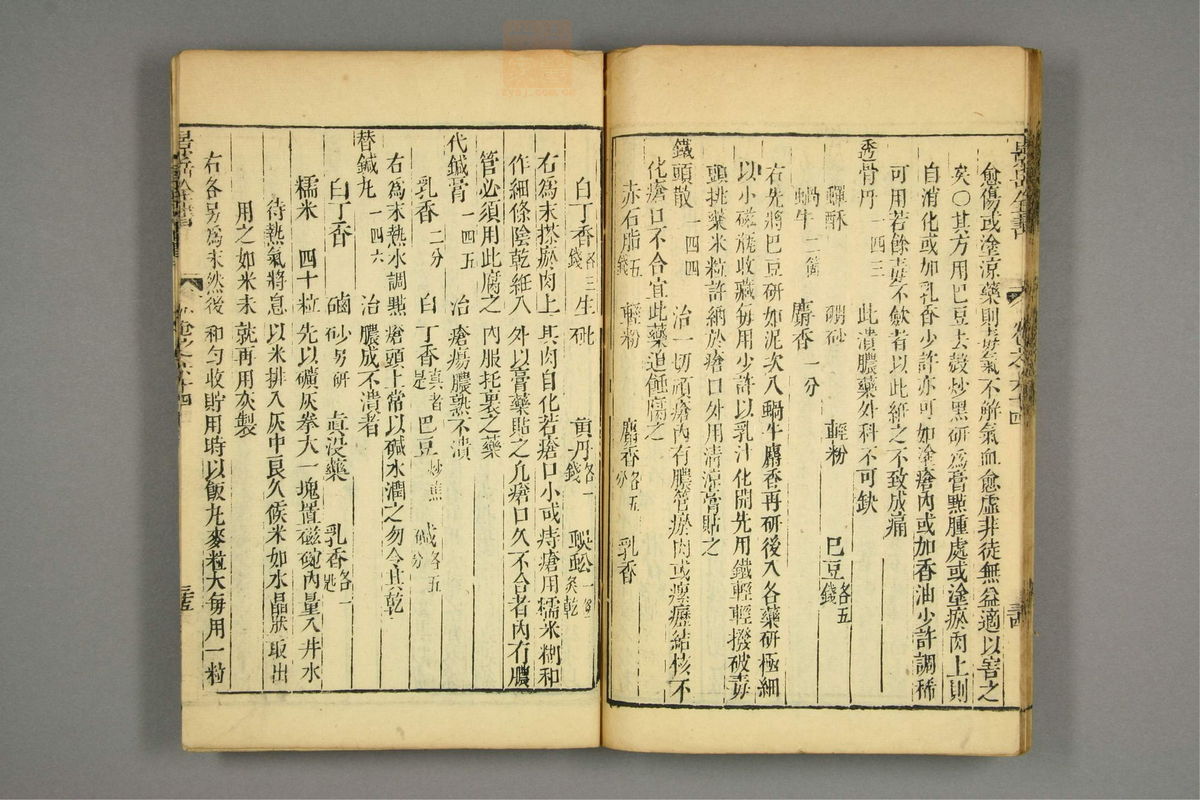 愈傷或塗涼藥則毒氣不解氣血愈虛非徒無益適以害之
矣○其方用巴豆去殼炒黑研爲膏點腫處或塗瘀肉上則
自消化或加乳香少許亦可如塗瘡內或加香油少許調稀
可用若餘毒不斂者以此紝之不致成痛
透骨丹 一四三 此潰膿藥外科不可缺
蟬酥 硼砂 輕粉 巴豆各五錢
蝸牛二箇 麝香一分
右先將巴豆研如泥次入蝸牛麝香再研後入各藥研極細
以小磁瓶收藏每用少許以乳汁化開先用鐵輕輕撥破毒
頭挑藥米粒許納於瘡口外用清涼膏貼之
鐵頭散 一四四 治一切頑瘡內有膿管瘀肉或瘰癧結核不
化瘡口不合宜此藥追蝕腐之
赤石脂五錢 輕粉 麝香各五分 乳香
白丁香各三錢 生砒 黄丹各一錢 蜈蚣一條炙乾
右爲末搽瘀肉上其肉自化若瘡口小或痔瘡用糯米糊和
作細條陰乾紝入外以膏藥貼之凡瘡口久不合者內有膿
管必須用此腐之內服托裏之藥
代鍼膏 一四五 治瘡瘍膿熟不潰
乳香二分 白丁香真者是 巴豆炒焦 碱各五分
右爲末熱水調點瘡頭上常以碱水潤之勿令其乾
替鍼丸 一四六 治膿成不潰者
白丁香 硇砂另研 眞没藥 乳香各一匙
糯米四十粒先以礦灰拳大一塊置磁碗內量入井水
待熱氣將息以米排入灰中良久候米如水晶狀取出
用之如米未就再用灰製
右各另爲末然後和勻收貯用時以飯丸麥粒大每用一粒